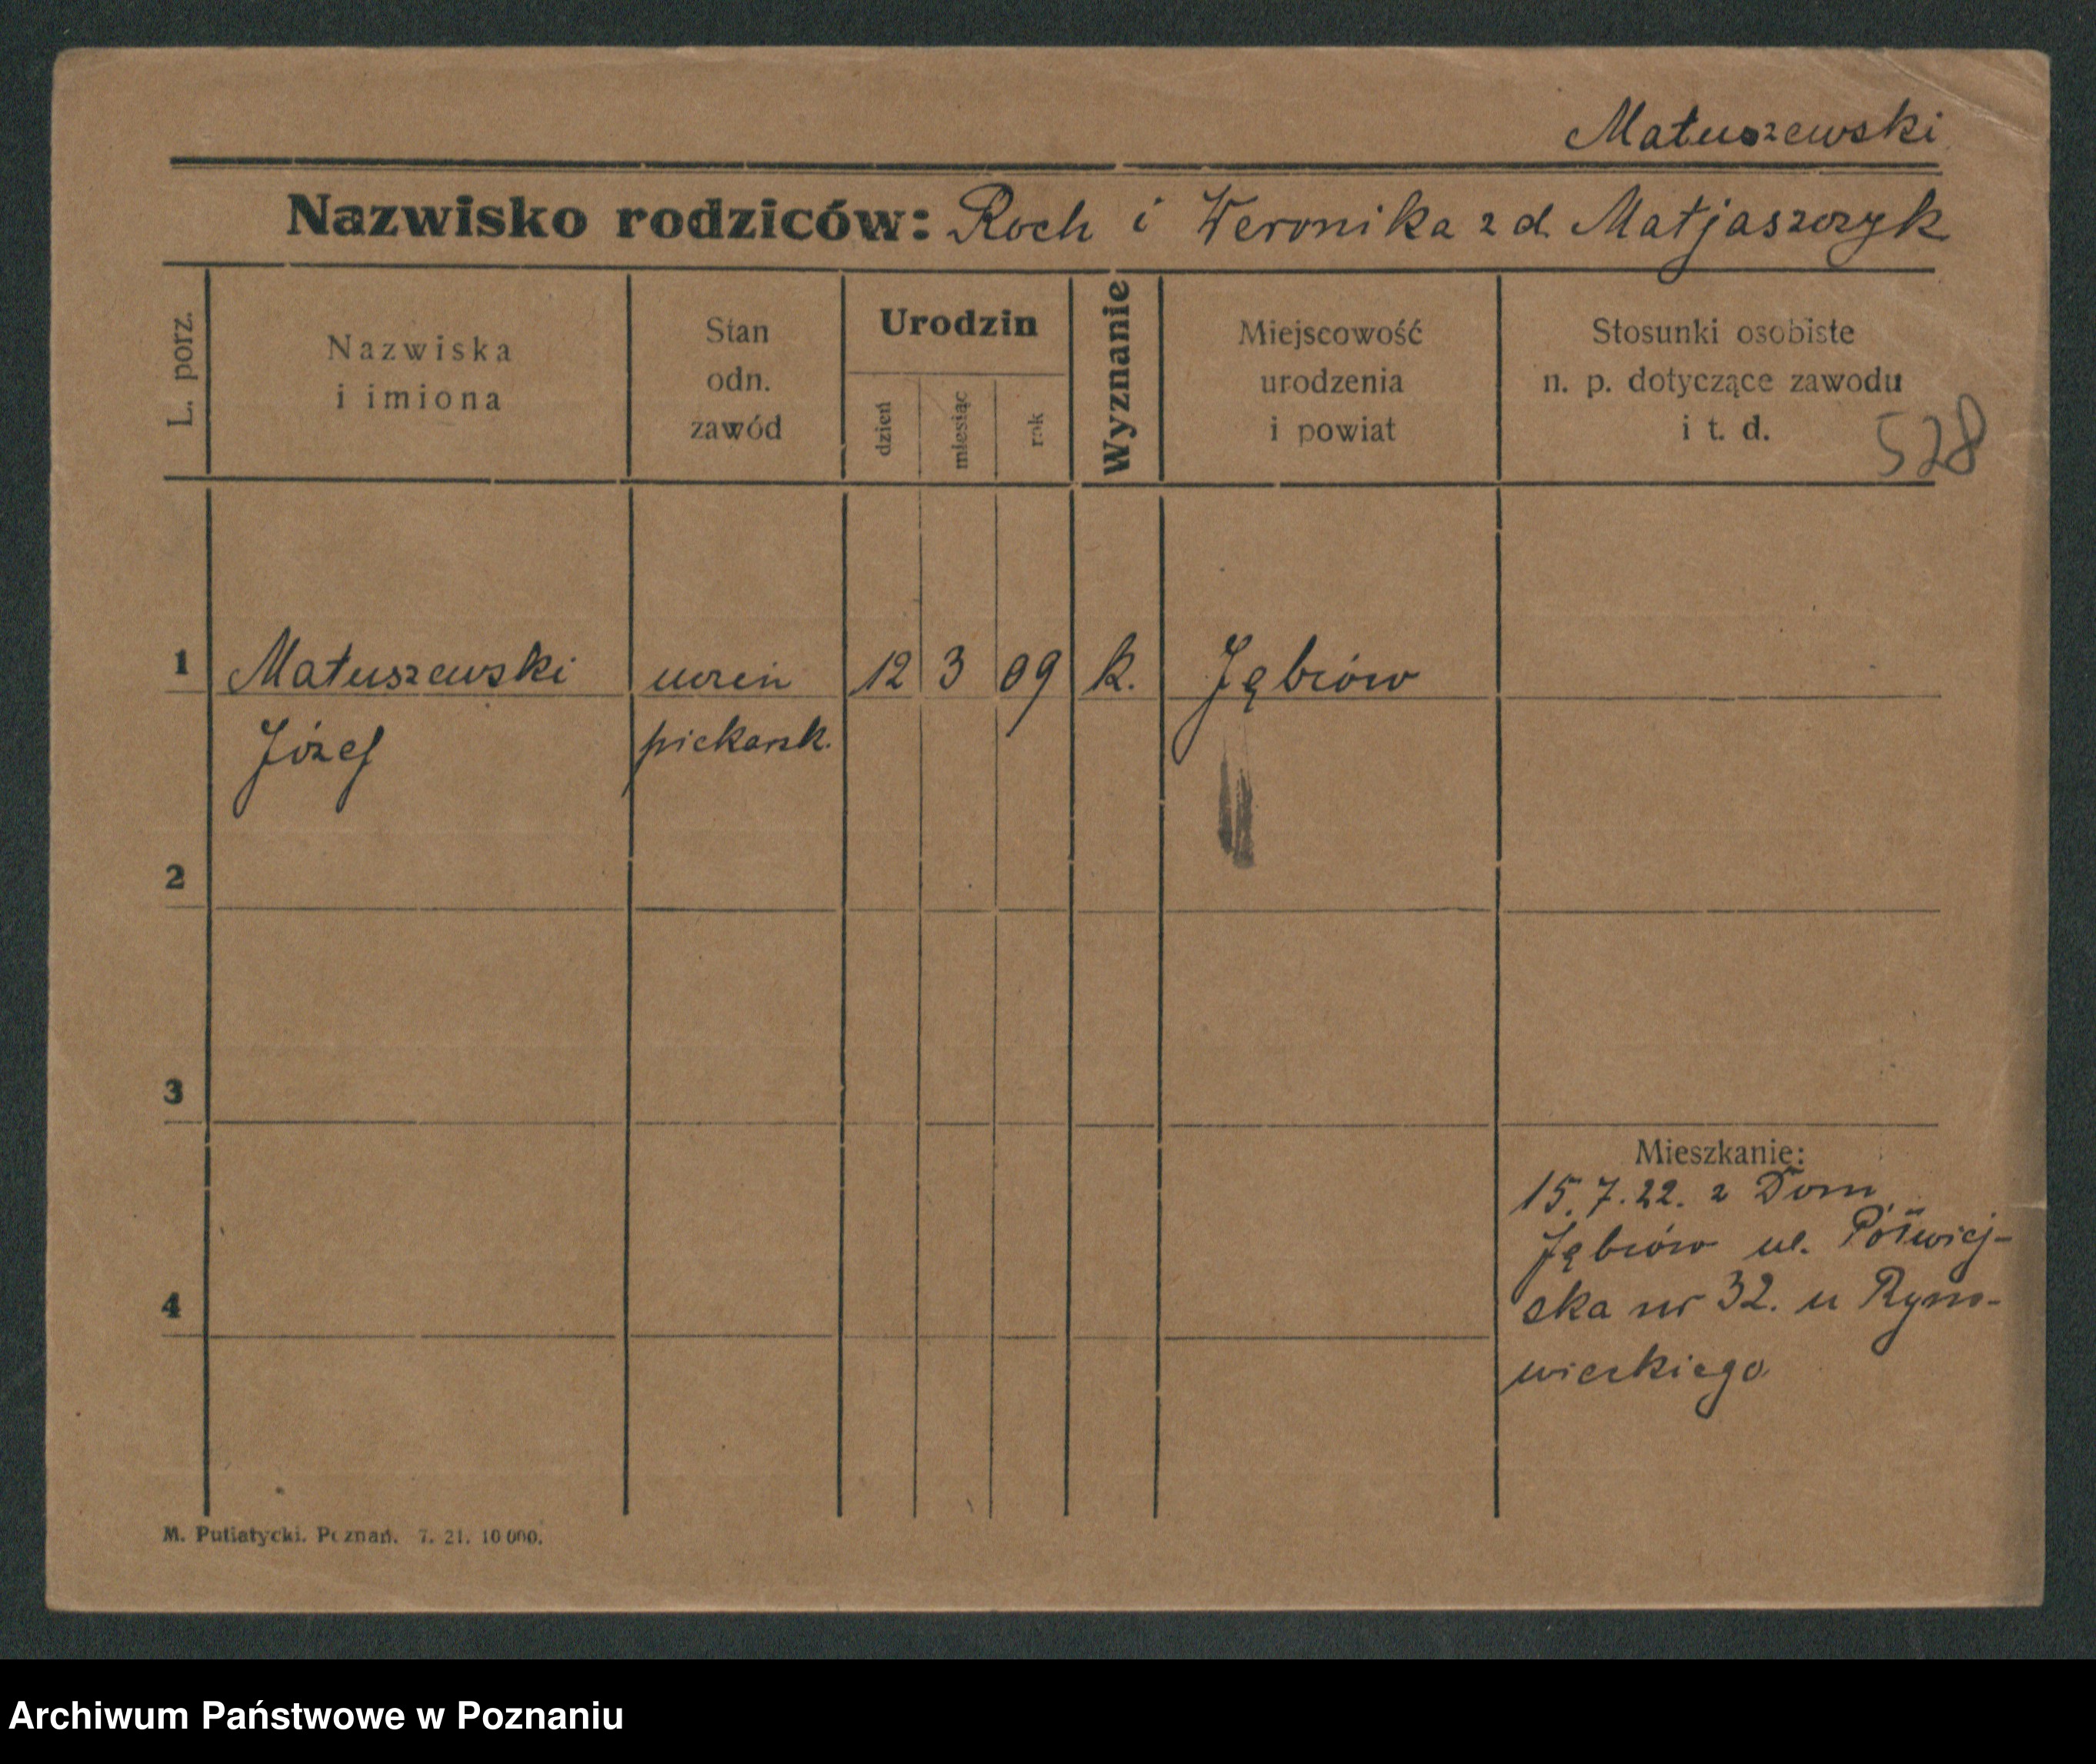 Matuszewski
Nazwisko rodziców: Roch i Weronika z d. Matjaszczyk
L. porz.
Nazwiska
i imiona
Stan
odn.
zawód
Urodzin
dzień
miesiąc
rok
Wyznanie
Miejscowość
urodzenia
i powiat
Stosunki osobiste
n. p. dotyczące zawodu
i t. d.
528
1 Matuszewski uczeń 12 3 09 k.
Józef piekarsk.
2
3
4
Mieszkanie:
15.7.22. z Dom
ul. Półwiej-
ska nr 32. u Rym-
M. Putiatycki. Poznań. 7. 21. 10 000.
Archiwum Państwowe w Poznaniu